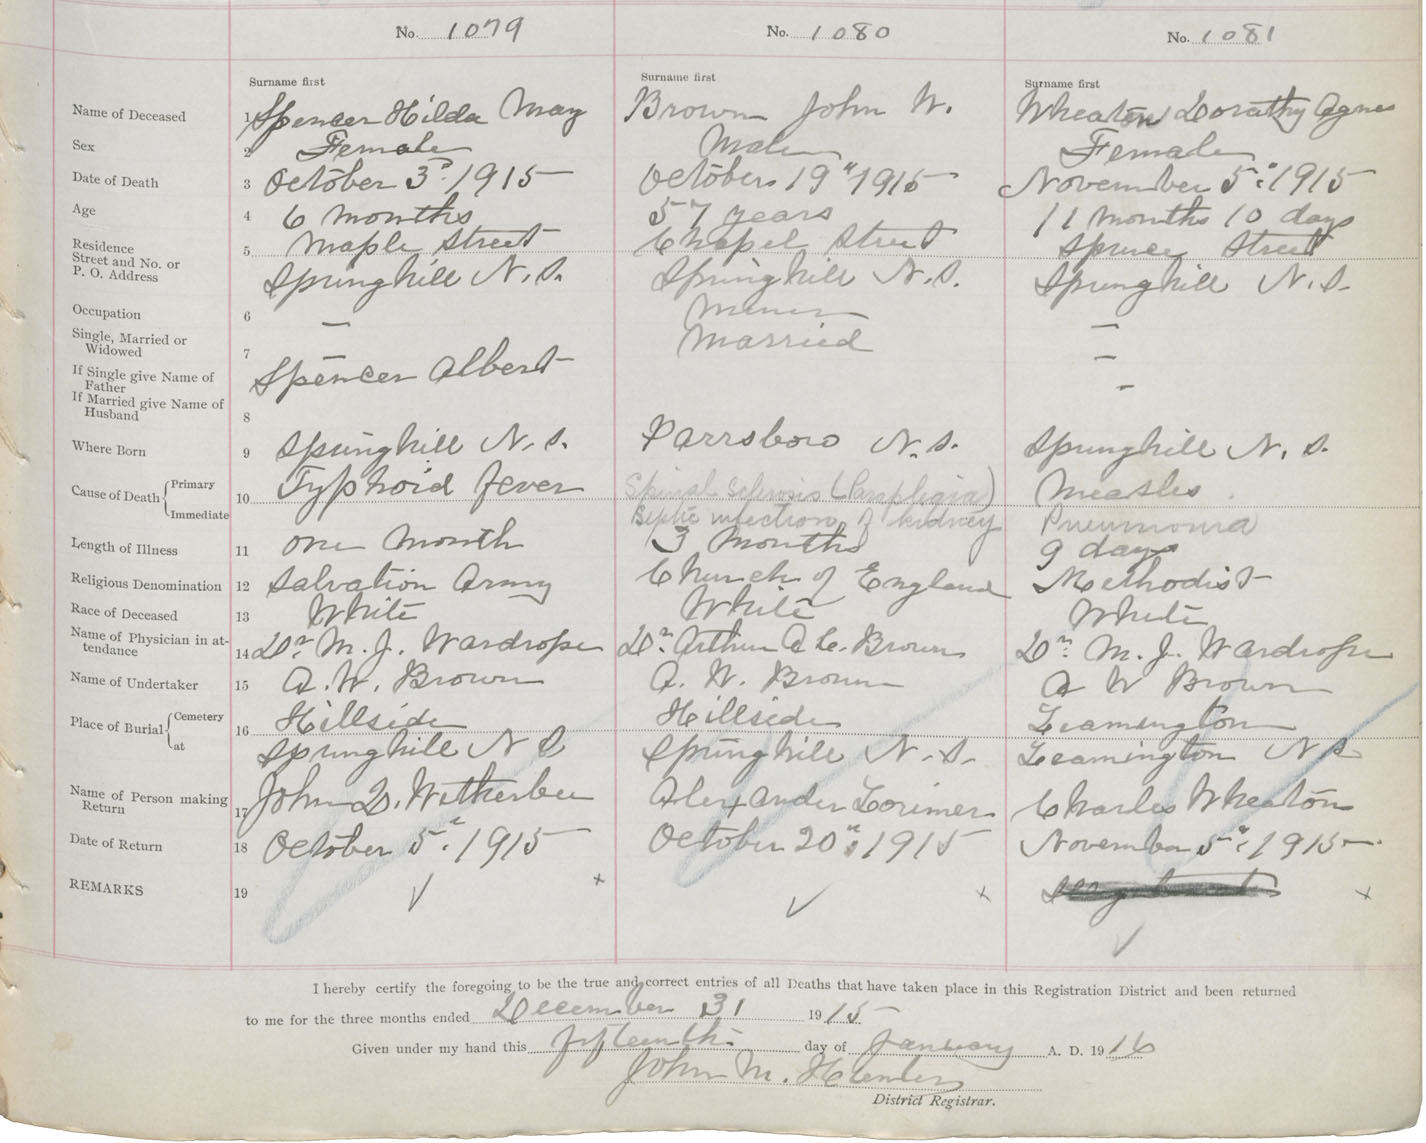 No. 1079 No. 1080 No. 1081
Surname first Surname first Surname first
Name of Deceased 1 Spencer Hilda May Brown John W. Wheaton Dorathy Agnes
Sex 2 Female Male Female
Date of Death 3 October 3rd 1915 October 19th 1915 November 5th 1915
Age 4 6 months 57 years 11 months 10 days
Residence Street and No. or P. O. Address 5 Maple Street Chapel Street Spruce Street
Springhill N.S. Springhill N.S. Springhill N.S.
Occupation 6 — Miner —
Single, Married or Widowed 7 — Married —
If Single give Name of Father Spencer Albert -
If Married give Name of Husband 8
Where Born 9 Springhill N.S. Parrsboro N.S. Springhill N.S.
Cause of Death { Primary 10 Typhoid Fever Spinal Sclerosis (Paraplegia) Measles
Immediate Septic infection of kidney Pneumonia
Length of Illness 11 one month 3 months 9 days
Religious Denomination 12 Salvation Army Church of England Methodist
Race of Deceased 13 White White White
Name of Physician in attendance 14 Dr. M. J. Wardrope Dr. Arthur A Le. Brown Dr. M. J. Wardrope
Name of Undertaker 15 A. W. Brown A. W. Brown A W Brown
Place of Burial { Cemetery 16 Hillside Hillside Leamington
at Springhill N S Springhill N.S. Leamington N S
Name of Person making Return 17 John D. Witherbee Alexander Lorimer Charles Wheaton
Date of Return 18 October 5th 1915 October 20th 1915 November 5th 1915
REMARKS 19
I hereby certify the foregoing to be the true and correct entries of all Deaths that have taken place in this Registration District and been returned
to me for the three months ended December 31 1915
Given under my hand this fifteenth day of January A. D. 1916
John M. Hunter
District Registrar.